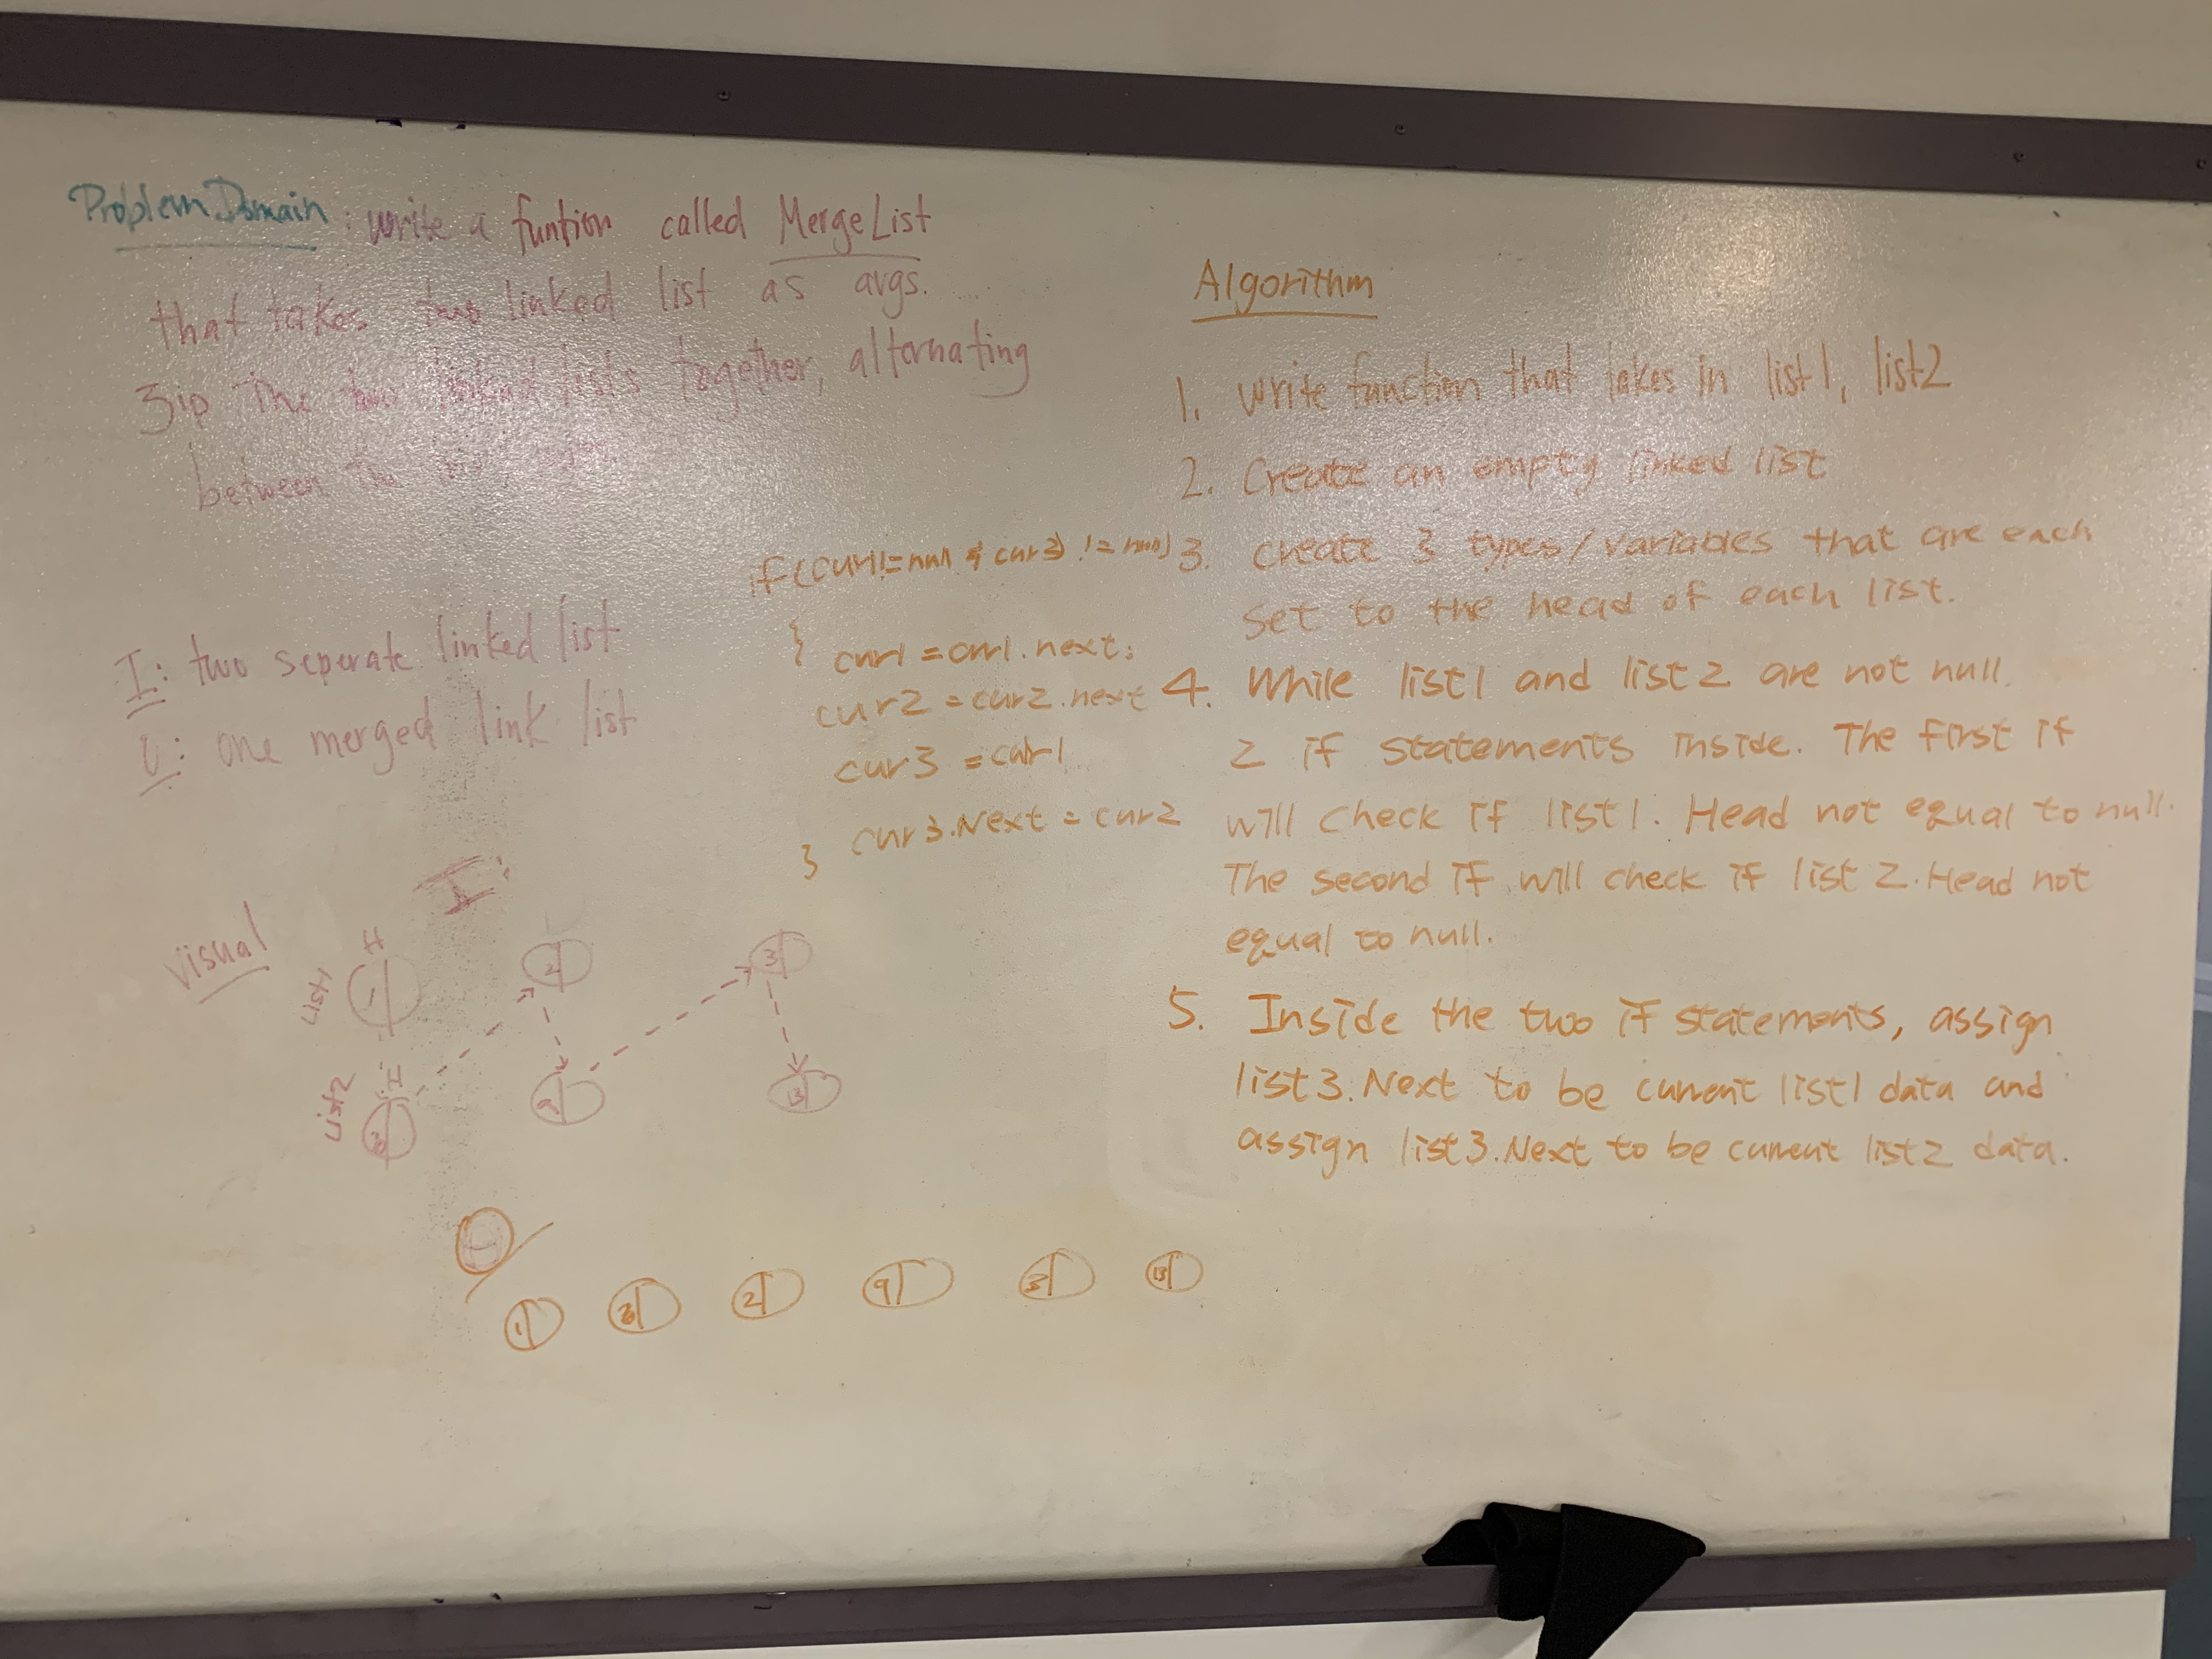 Problem Domain : write a funtion called MergeList
that takes two linked list as args.
Zip The two linked lists together, alternating
between The
I: two seperate linked list
O: one merged link list
if (cur1!=null & cur2 != null)
{
cur1 = cur1.next;
cur2 = cur2.next
cur3 = cur1
cur3.Next = cur2
}
visual
I:
List1
H
1
2
3
List2
H
3
9
13
1
3
2
9
3
13
Algorithm
1. Write function that takes in list1, list2
2. Create an empty linked list
3. create 3 types/variables that are each
set to the head of each list.
4. While list1 and list2 are not null.
2 if statements inside. The first if
will check if list1. Head not equal to null.
The second if will check if list 2. Head not
equal to null.
5. Inside the two if statements, assign
list3.Next to be current list1 data and
assign list3.Next to be current list2 data.